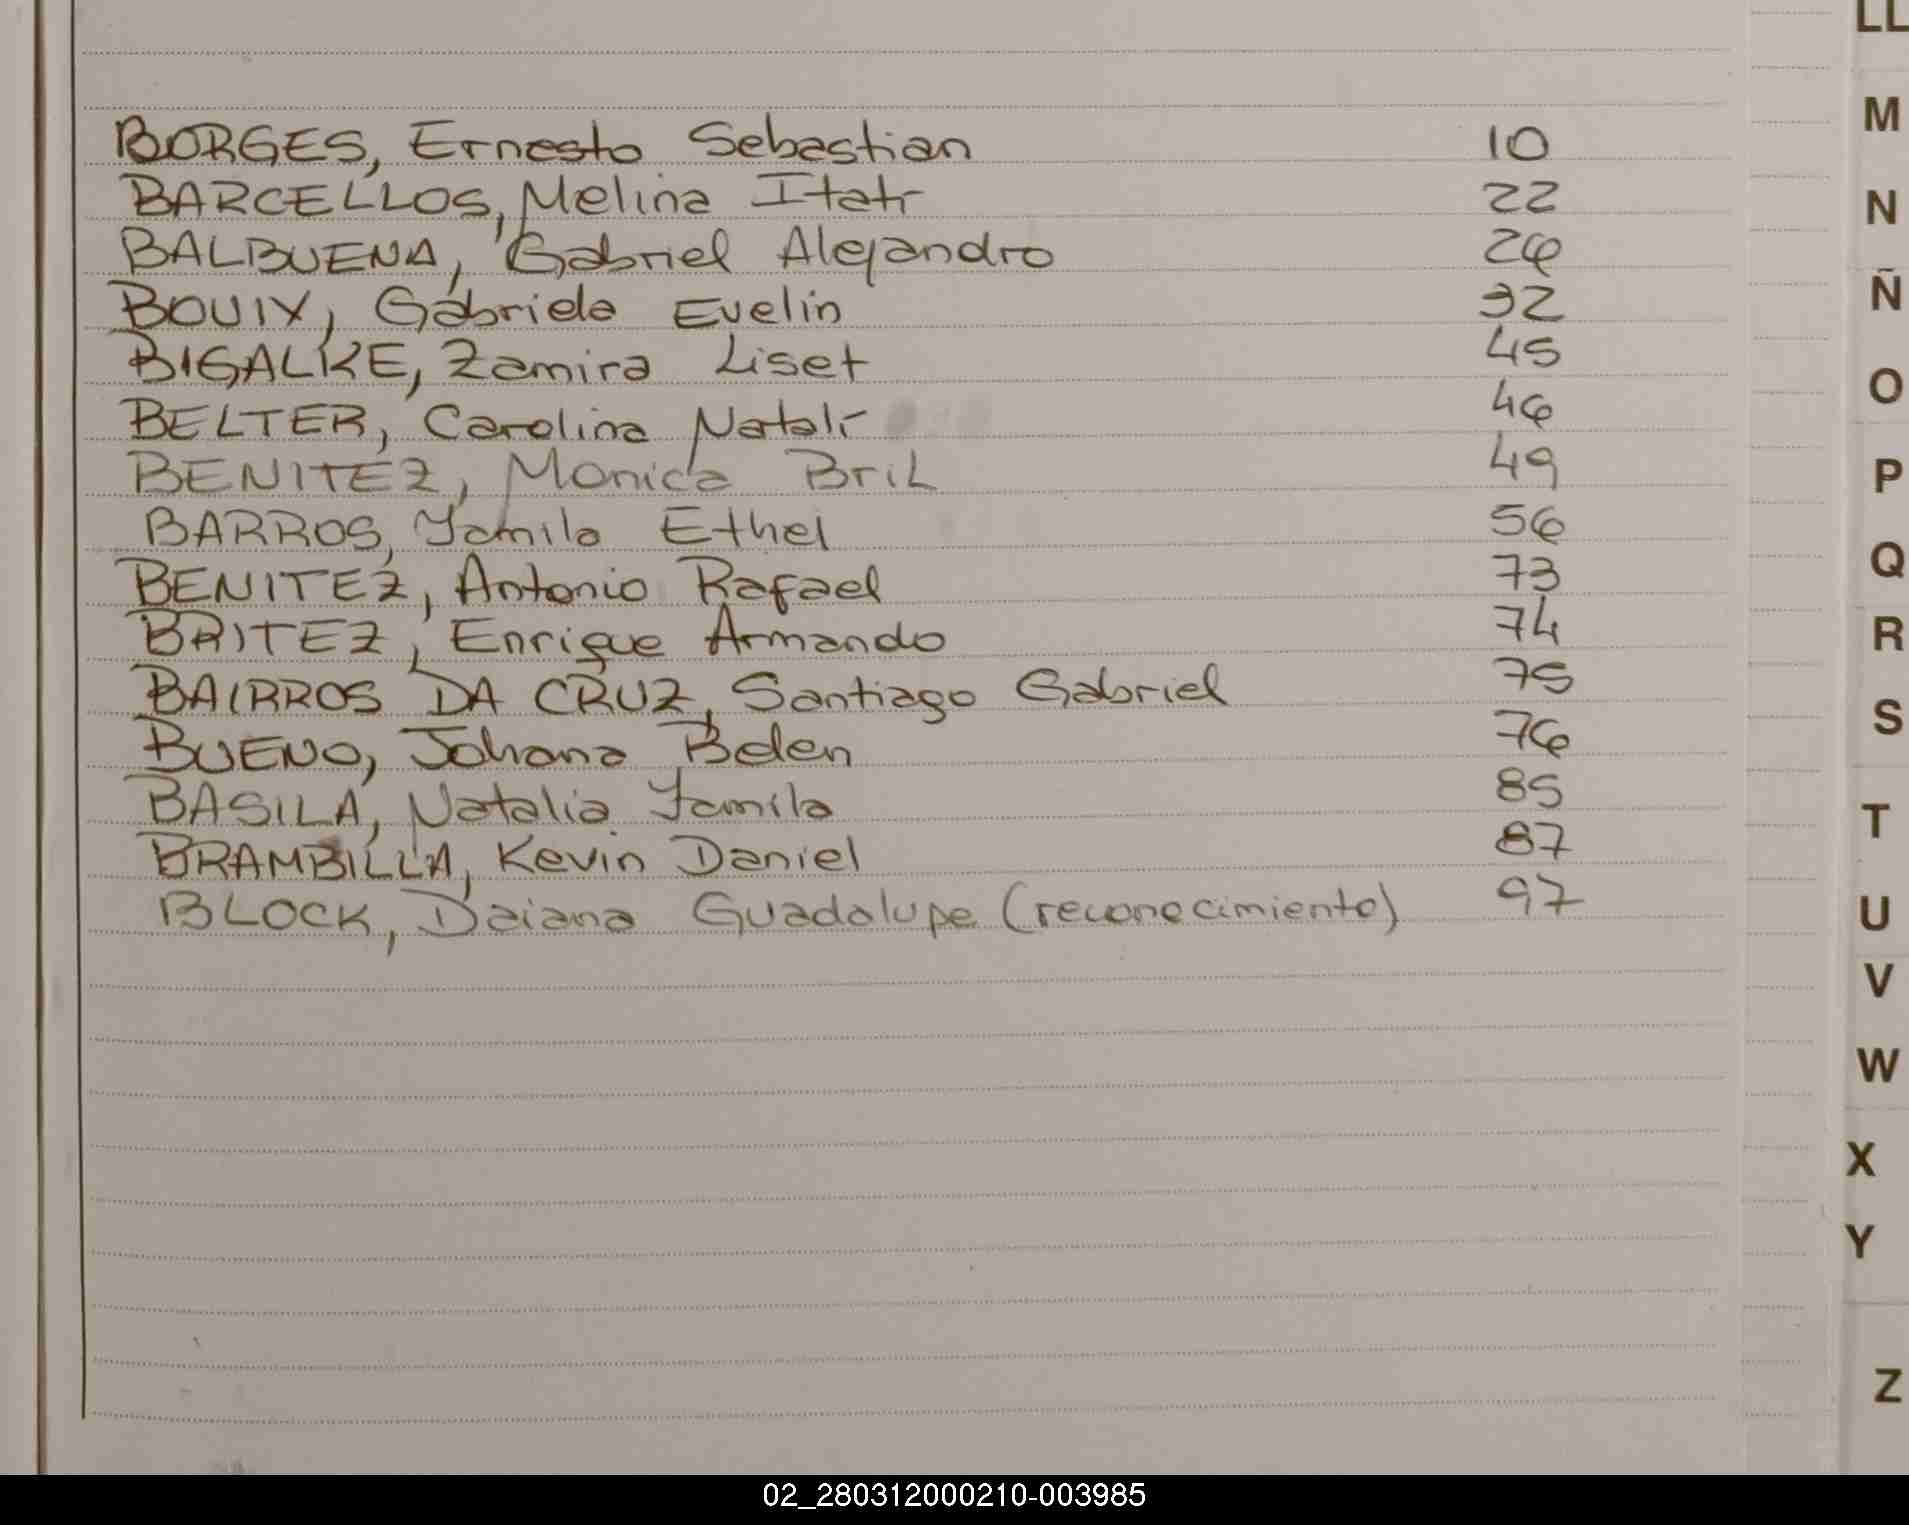 LL
M
N
Ñ
O
P
Q
R
S
T
U
V
W
X
Y
Z
BORGES, Ernesto Sebastian 10
BARCELLOS, Melina Itatí 22
BALBUENA, Gabriel Alejandro 26
BOUIX, Gabriela Evelin 32
BIGALKE, Zamira Liset 45
BELTER, Carolina Natalí 46
BENITEZ, Monica Bril 49
BARROS, Yamila Ethel 56
BENITEZ, Antonio Rafael 73
BRITEZ, Enrique Armando 74
BAIRROS DA CRUZ, Santiago Gabriel 75
BUENO, Johana Belen 76
BASILA, Natalia Yamila 85
BRAMBILLA, Kevin Daniel 87
BLOCK, Daiana Guadalupe (reconocimiento) 97
02_280312000210-003985